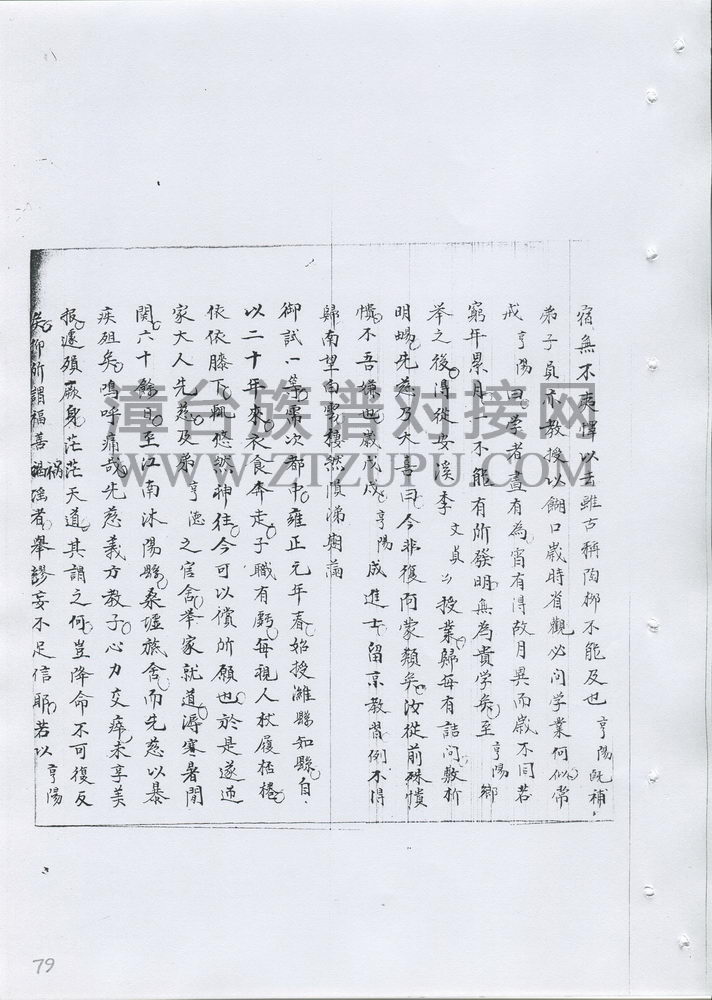 宿無不夷懌以去雖古稱陶柳不能及也亨陽既補
弟子員亦教授以餬口歲時省觀必问学業何似常
戒亨陽曰学者直有為宵有得故月異而歲不同若
窮年累月一不能有所發明無為貴学矣至亨陽鄉
举之後得從安溪李文貞公授業歸每有詰问敷析
明暢先慈乃大喜曰今非復阿蒙類矣汝從前殊憒
憒不吾嫌也歲戊戌亨陽成進士留京教習例不得
歸南望白雲悽然隕涕樹萹
御試一等需次都中雍正元年春始授濰縣知縣自
以二十年來衣食奔走子職有虧每視人杖履桮棬
依依膝下輒悠然神往今可以償所願也於是遂迎
家大人先慈及弟亨德之官舍举家就道潯寒暑間
関六十餘日至江南沭陽縣桑墟旅舍而先慈以暴
疾殂矣嗚呼痛哉先慈義方教子心力交瘁未享美
报遽殞厥身茫茫天道其謂之何豈降命不可復反
矣仰所謂福善禍淫者举謬妄不足信耶若以亨陽
漳台族谱对接网
WWW.ZTZUPU.COM
79